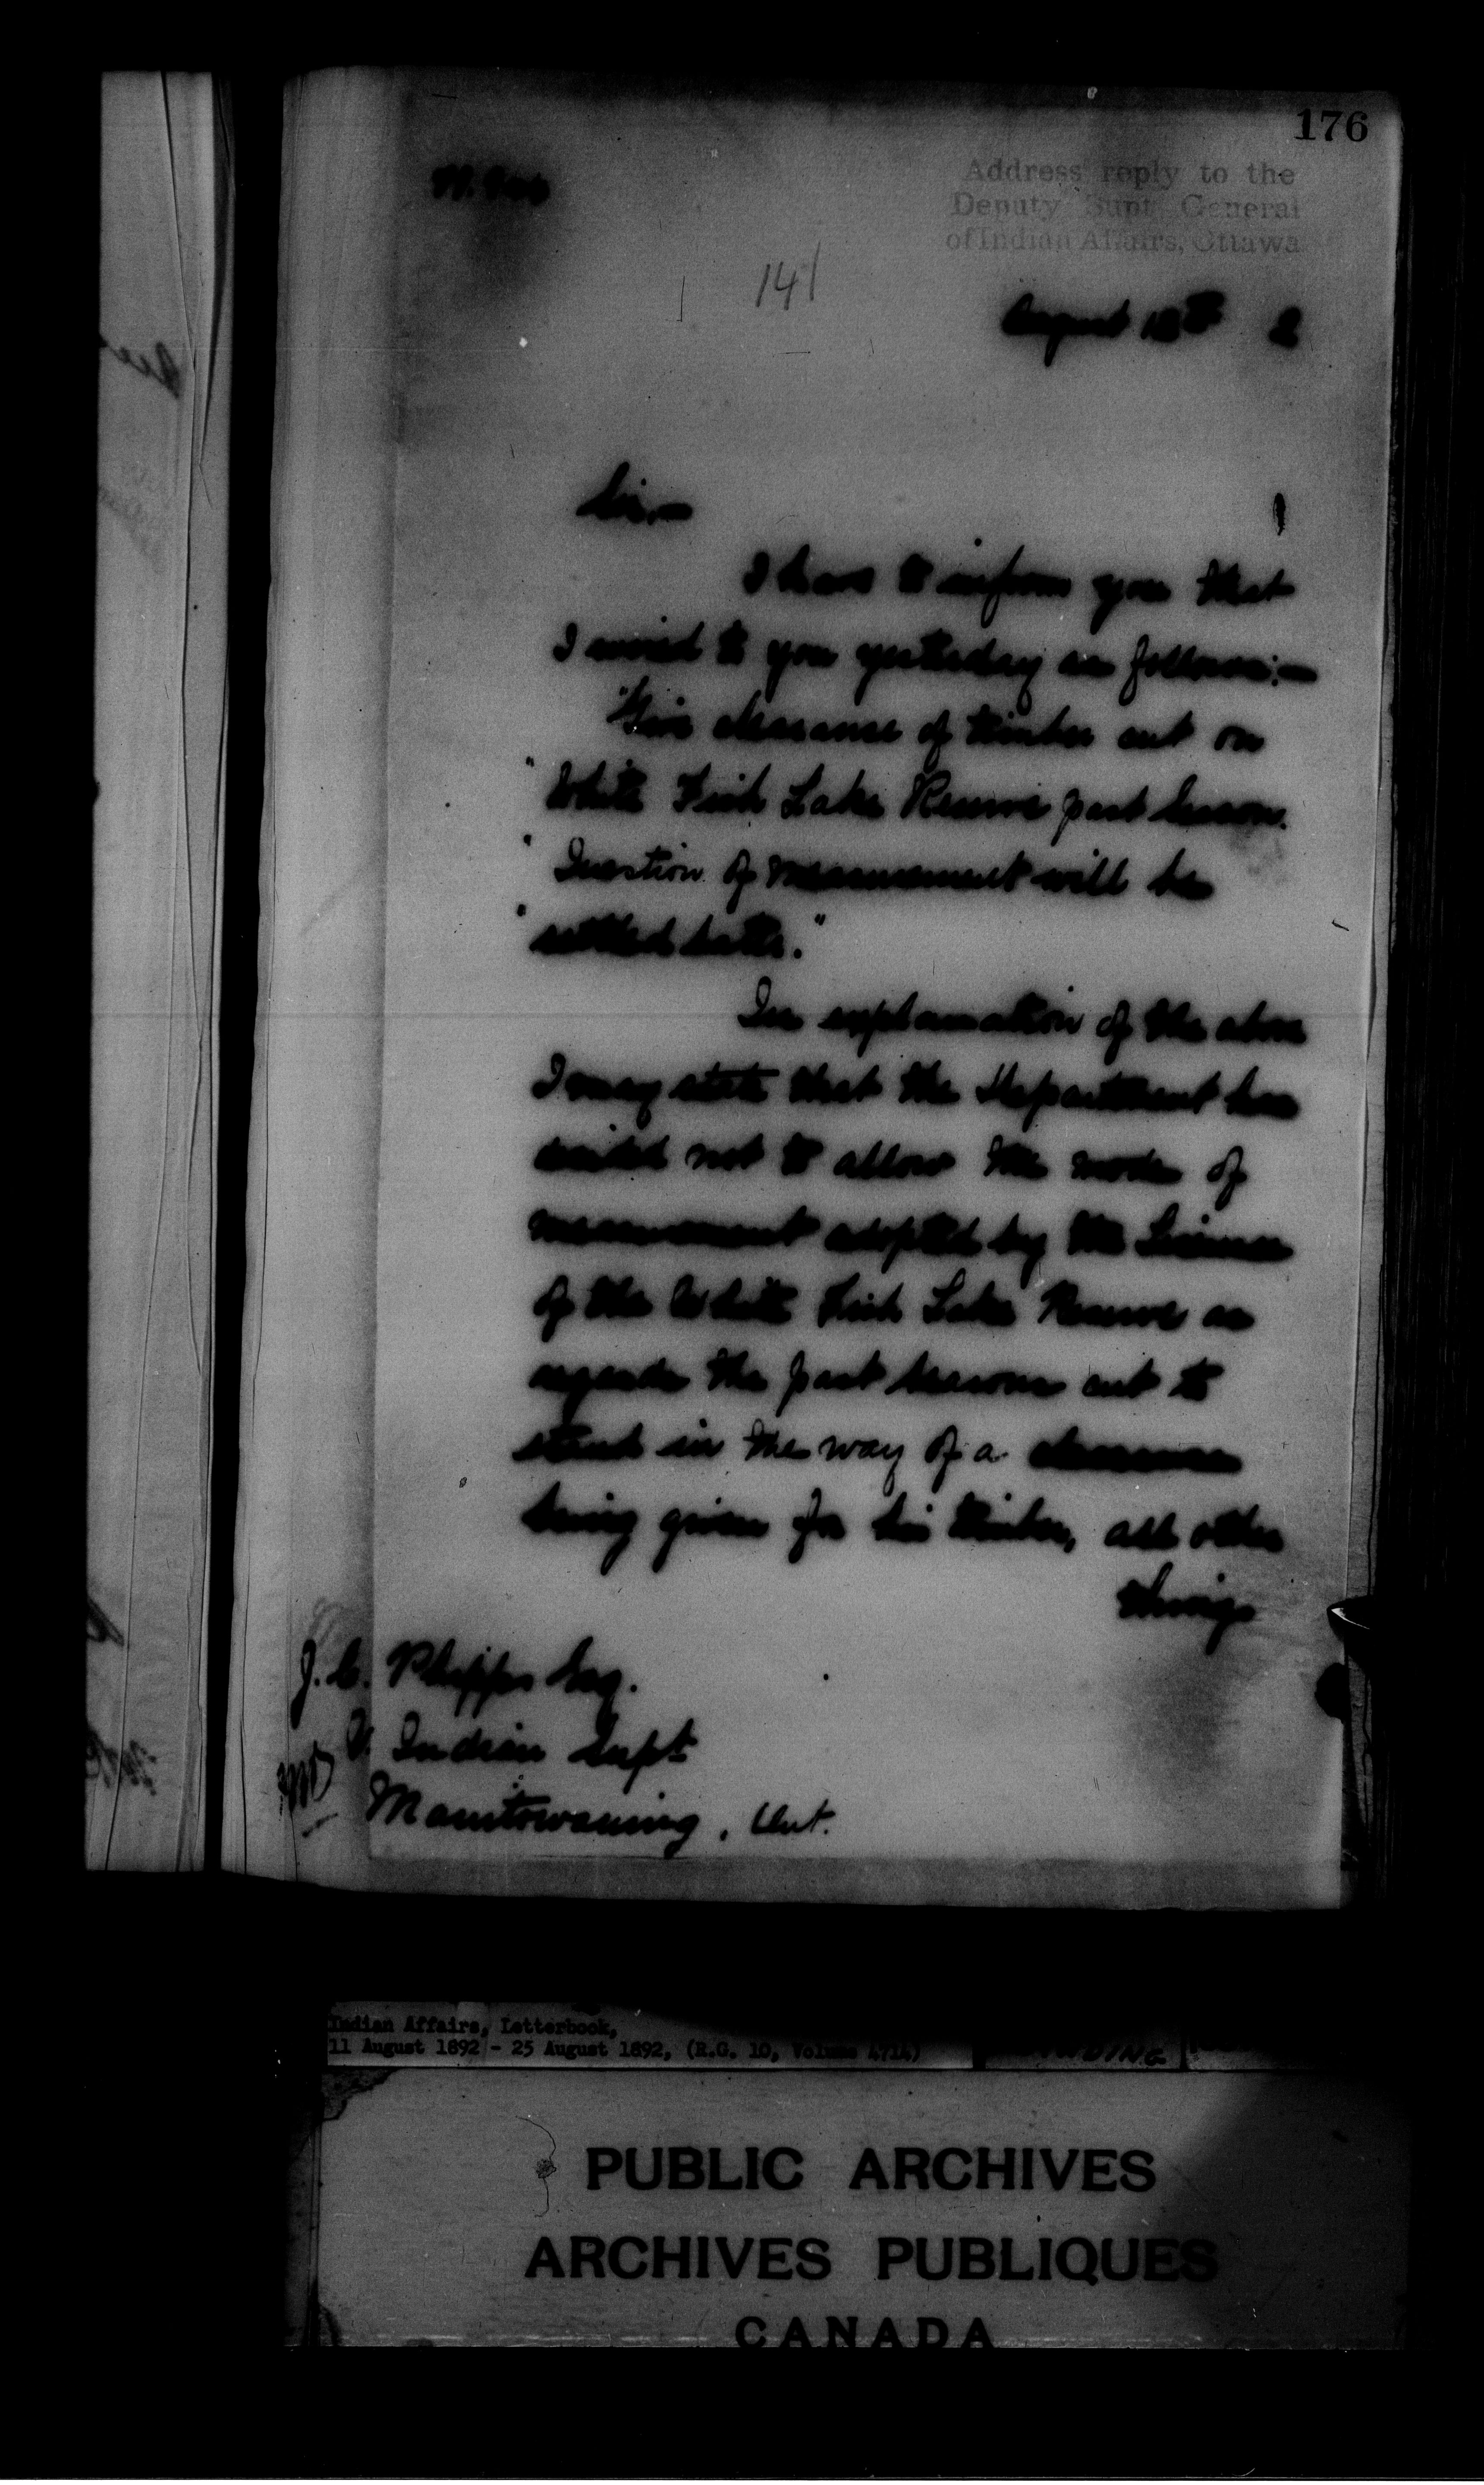 176
Address reply to the
Deputy Supt. General
of Indian Affairs, Ottawa
141
August 2
Sir,—
I have to inform you that
I wired to you yesterday as follows:—
"Give clearance of timber cut on
" White Fish Lake Reserve past season.
" Question of measurement will be
" settled later."
In explanation of the above
I may state that the Department has
decided not to allow the mode of
measurement adopted by the Licensee
of the White Fish Lake Reserve as
regards the past seasons cut to
stand in the way of a clearance
being given for his timber, all other
things
J. C. Phipps Esq.
V. Indian Supt
Manitowaning, Ont.
Indian Affairs, Letterbook,
11 August 1892 - 25 August 1892, (R.G. 10, Volume 4714)
PUBLIC ARCHIVES
ARCHIVES PUBLIQUES
CANADA